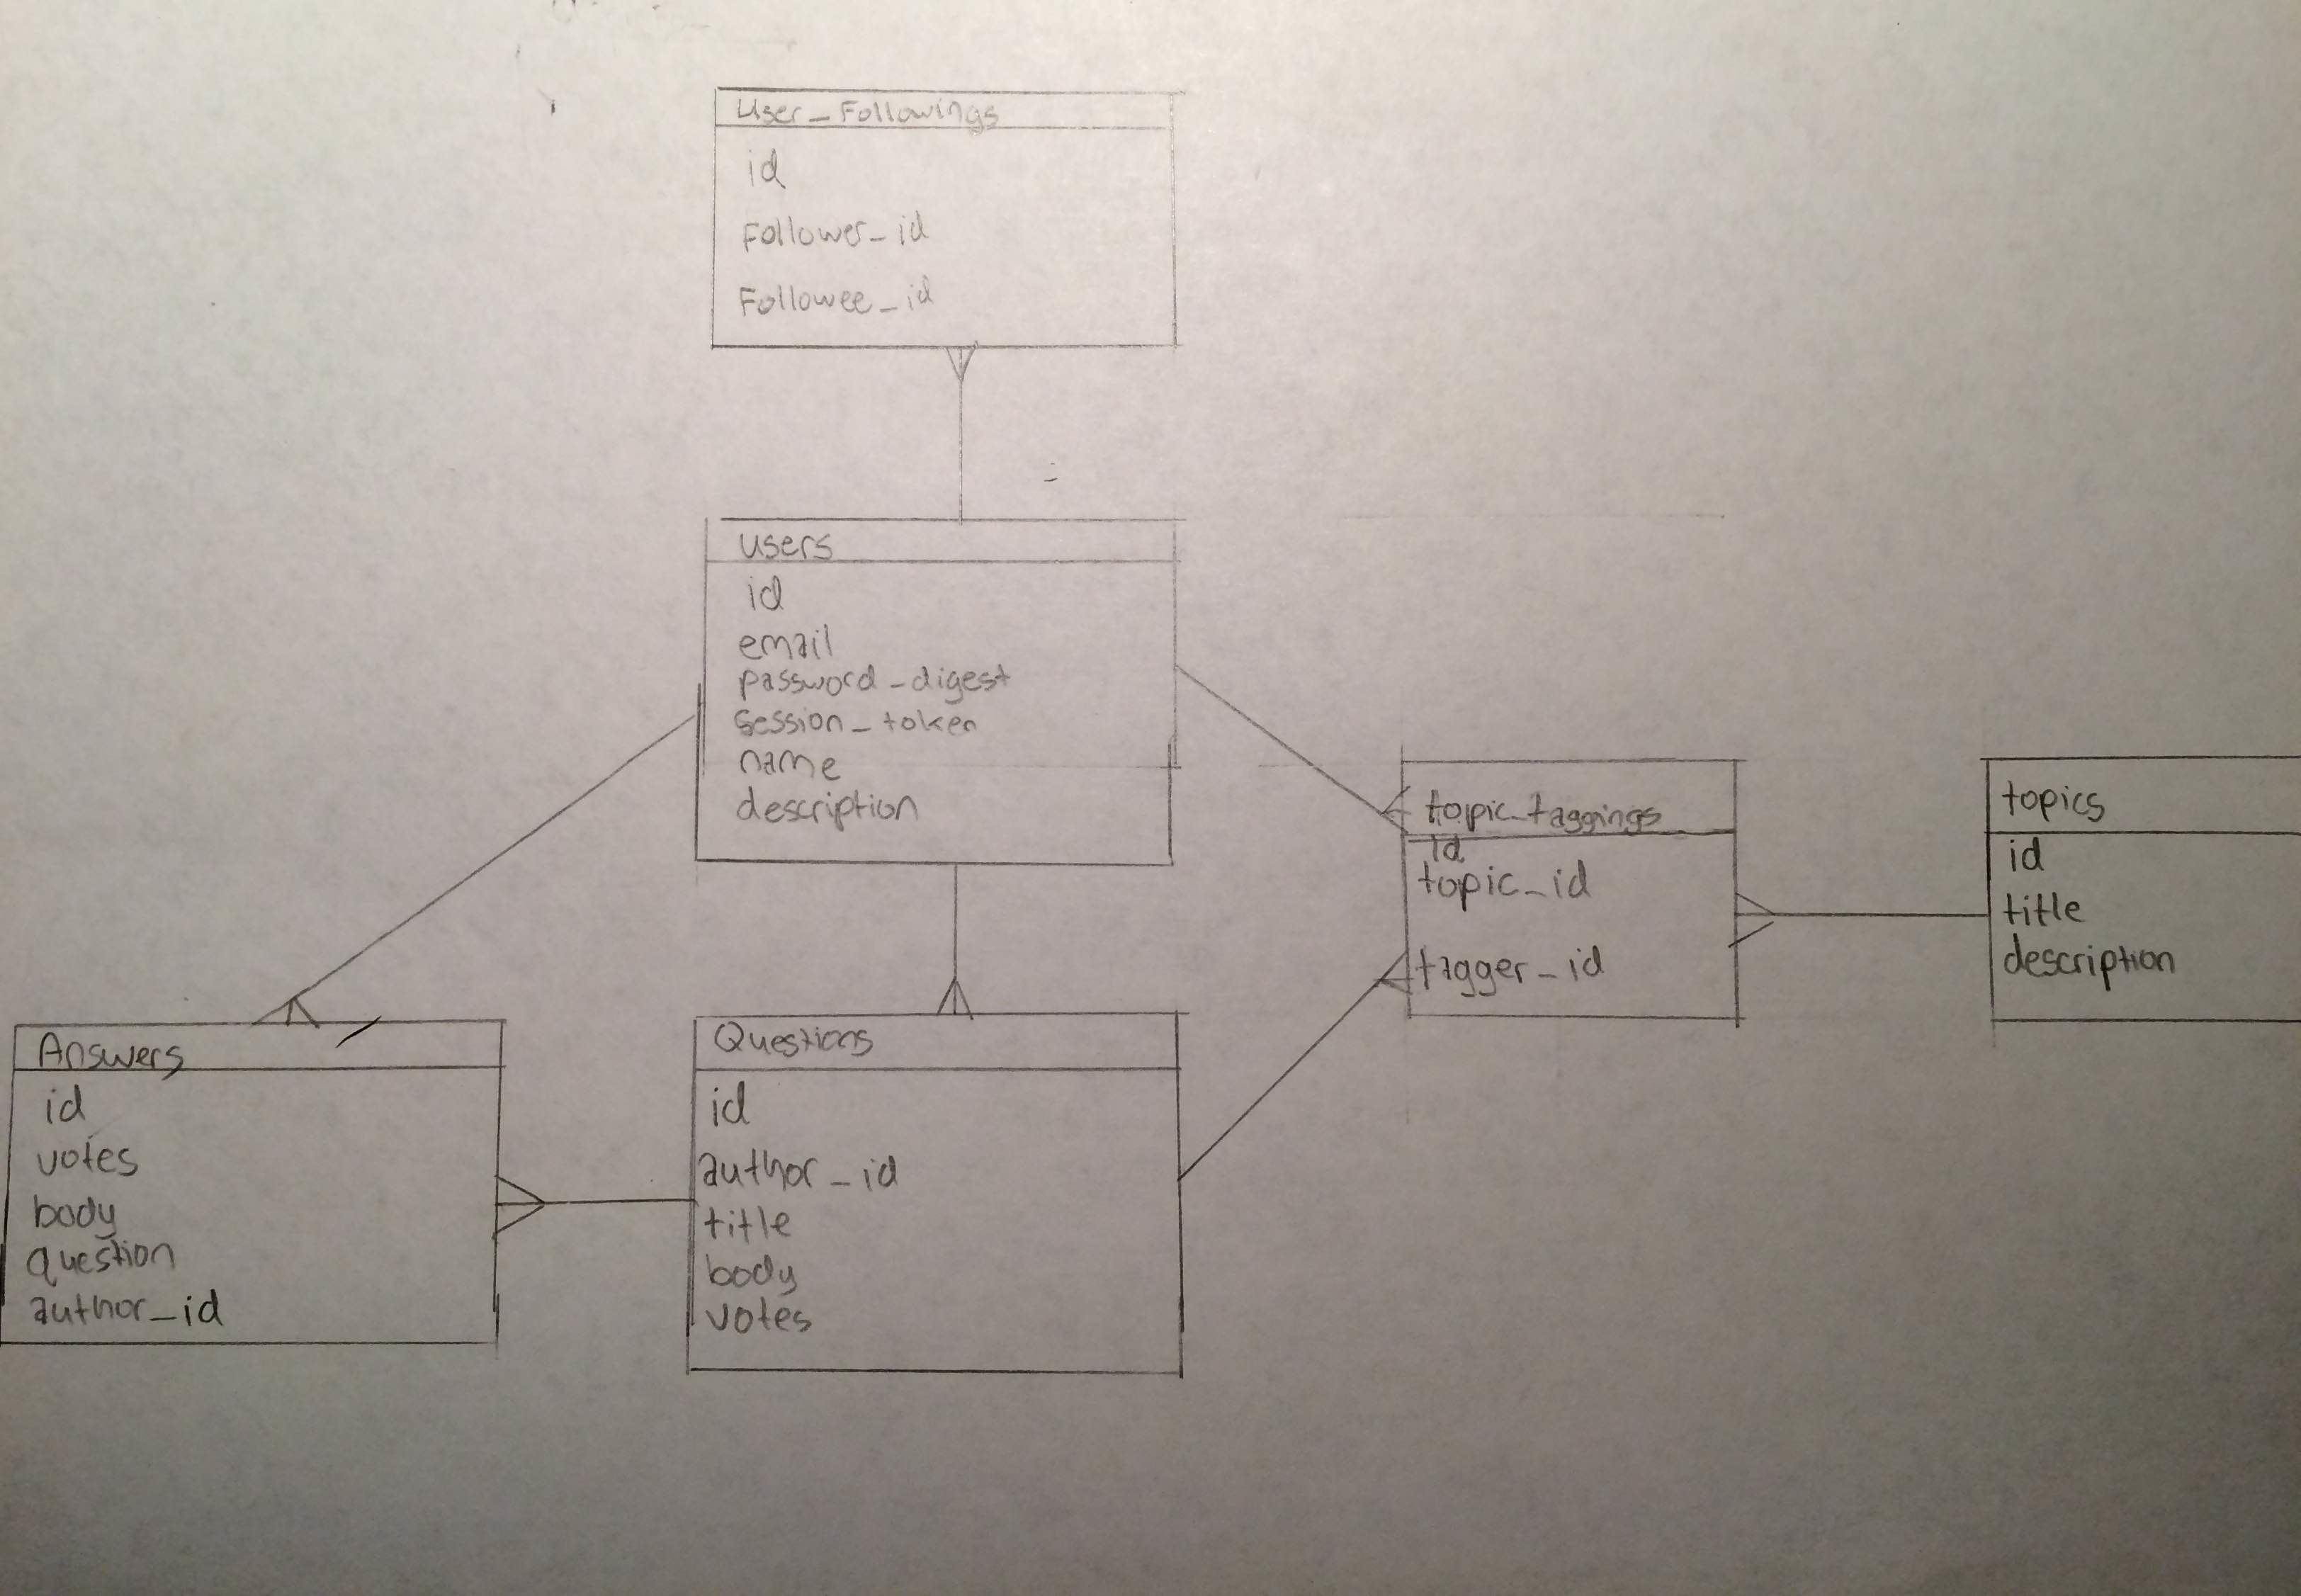 User_Followings
id
Follower_id
Followee_id
users
id
email
password_digest
session_token
name
description
topic_taggings
id
topic_id
tagger_id
topics
id
title
description
Answers
id
votes
body
question
author_id
Questions
id
author_id
title
body
votes